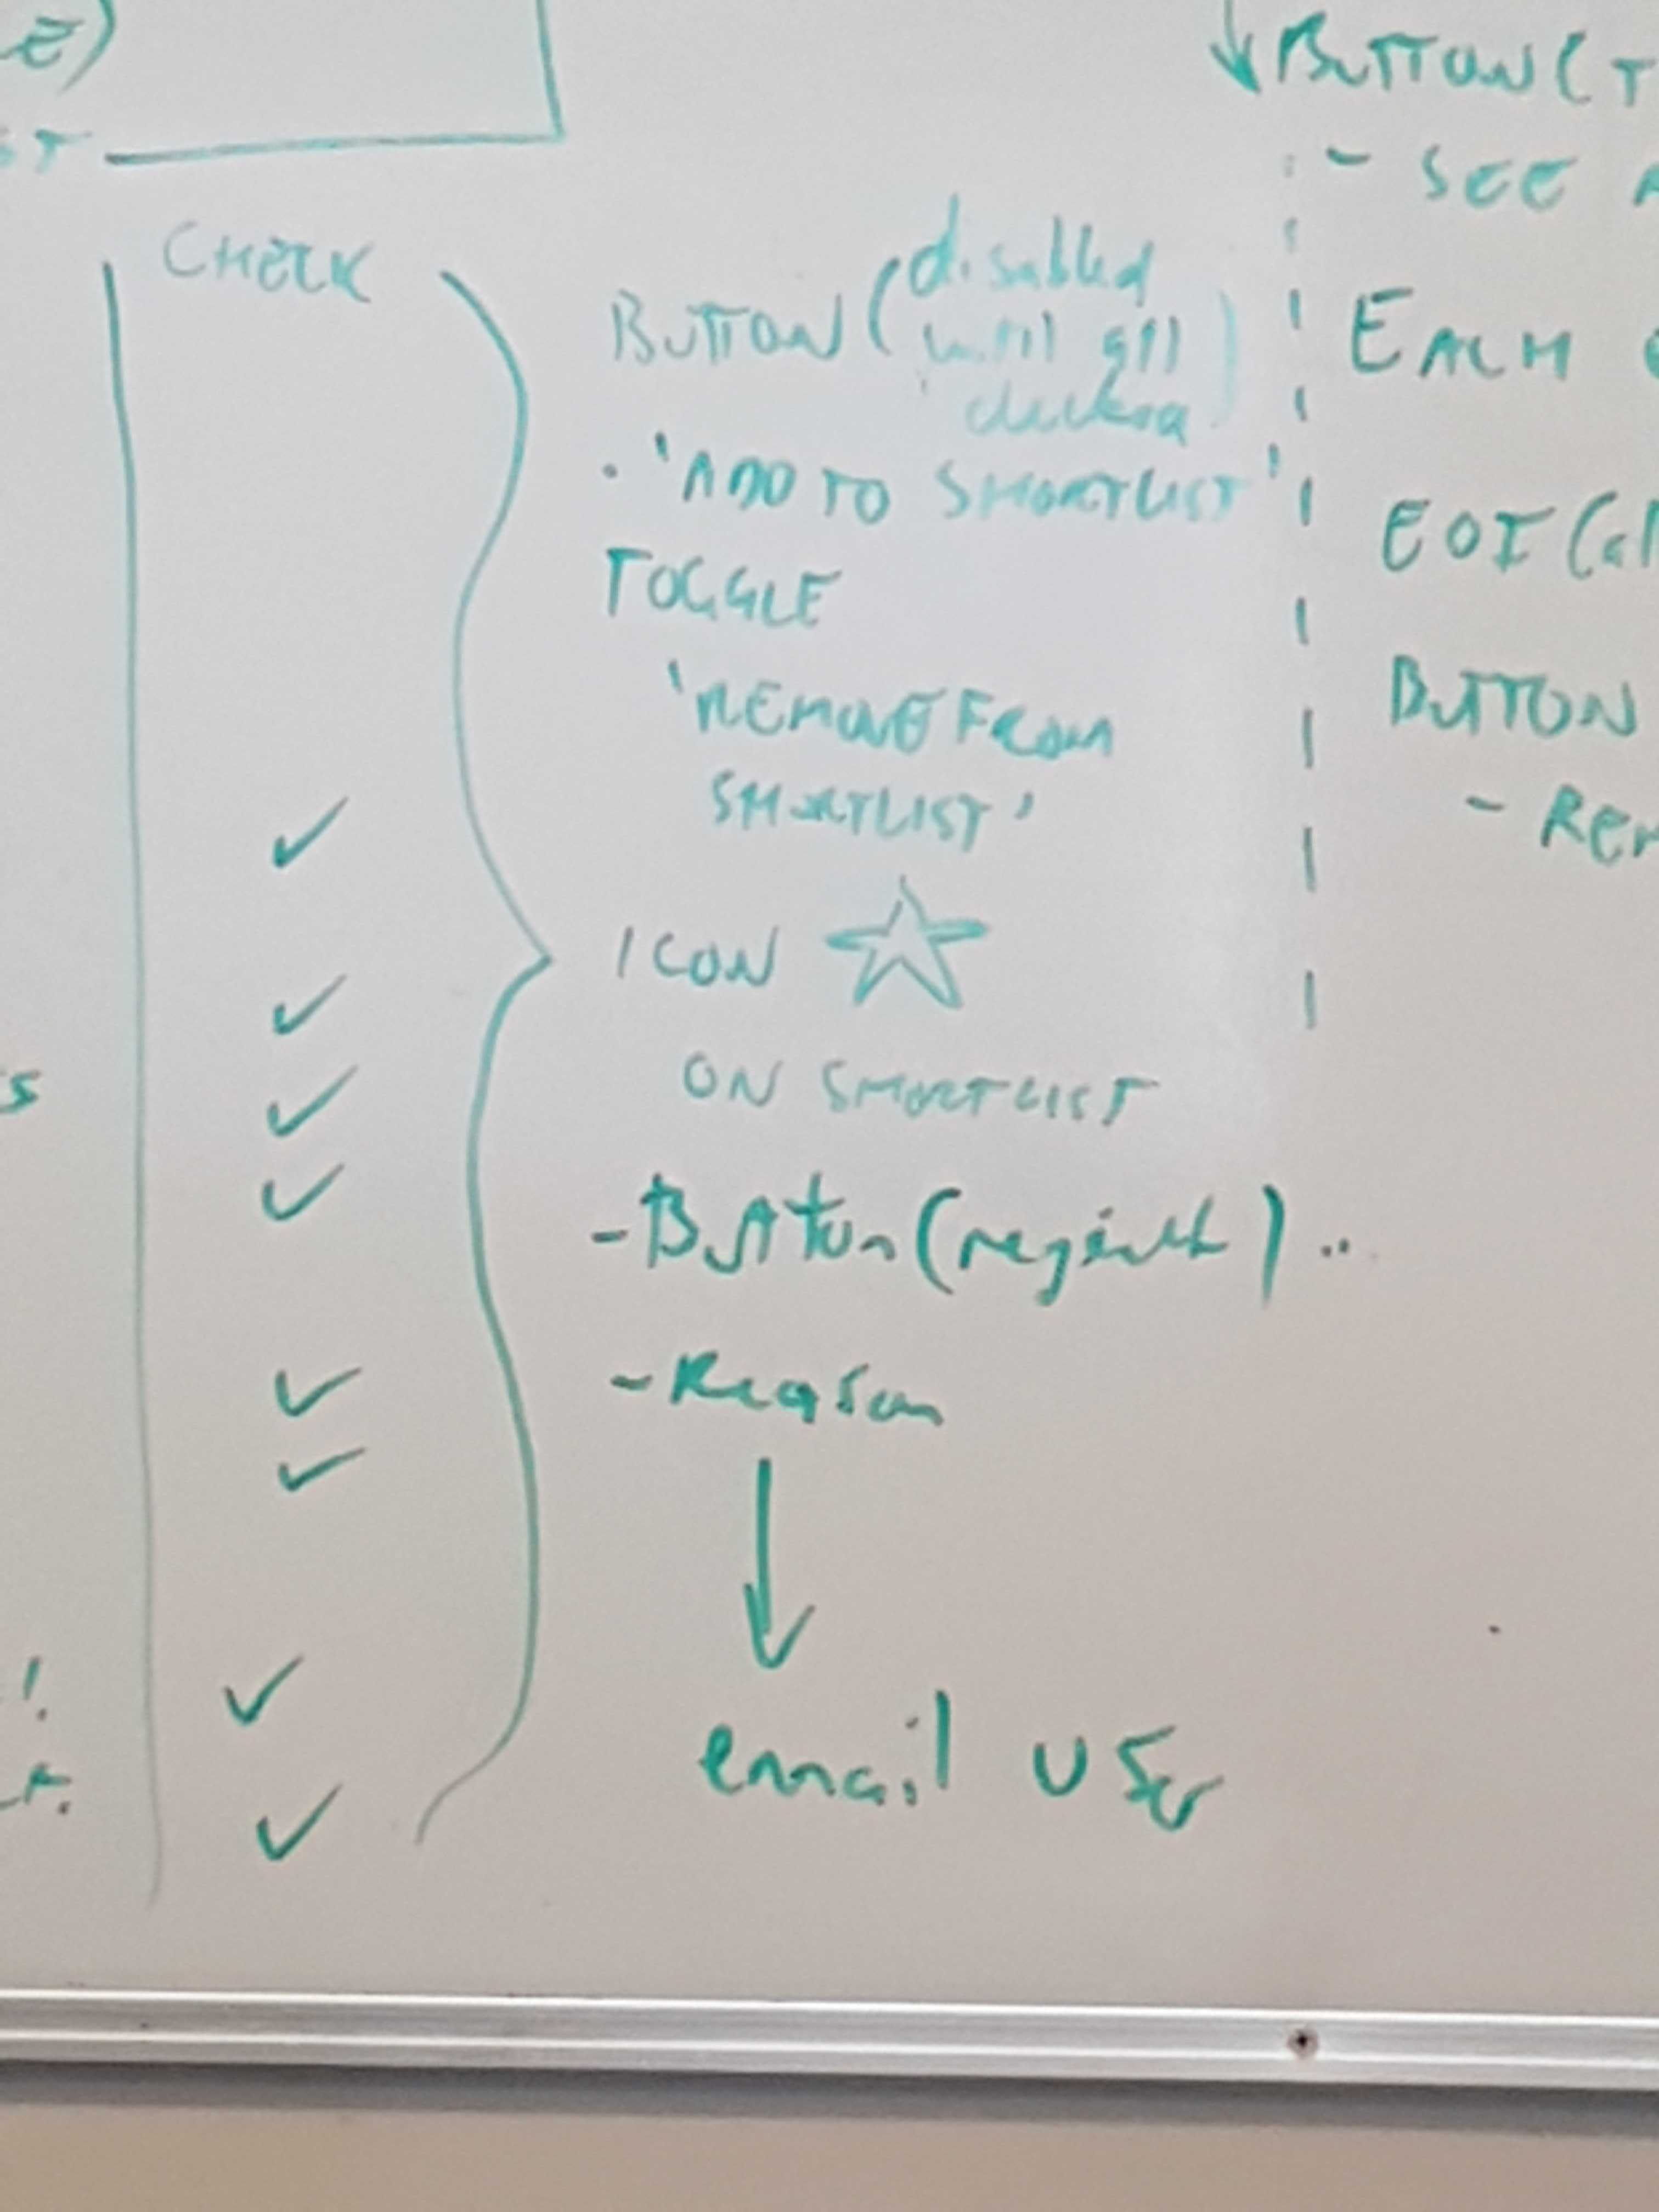 E)
ST
CHECK
BUTTON (disabled
until all
checked)
. 'ADD TO SHORTLIST'
TOGGLE
'REMOVE FROM
SHORTLIST'
ICON
ON SHORTLIST
- Button ( ) ..
- Reason
email user
s
!
t.
BUTTON (T
- SEE A
EACH
EOI (al
BUTTON
- REM